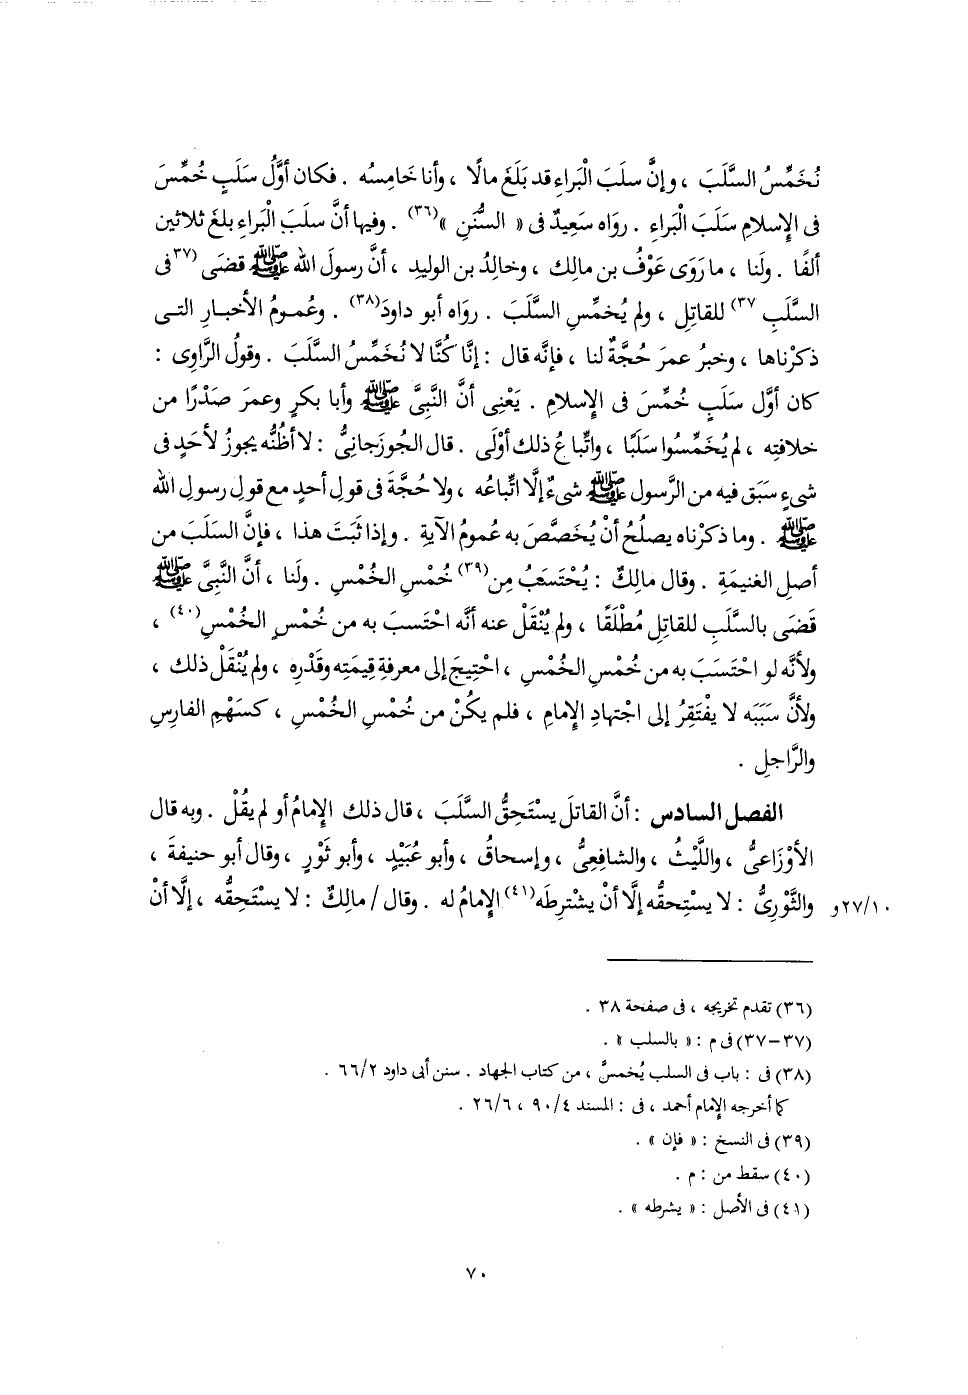 نُخَمِّسُ السَّلَبَ ، وإنَّ سلَبَ الْبَراءِ قد بَلَغَ مالًا ، وأنا خَامِسُه . فكان أوَّلُ سَلَبٍ خُمِّسَ
فى الإِسلامِ سَلَبَ الْبَراءِ . روَاه سَعِيدٌ فى « السُّنَنِ »(٣٦) . وفيها أنَّ سلَبَ الْبَراءِ بلغَ ثلاثين
ألفًا . ولَنا ، ما رَوَى عَوْفُ بن مالِك ، وخالِدُ بن الوليدِ ، أنَّ رسولَ الله ﷺ قضَى (٣٧فى
السَّلَبِ ٣٧) للقاتِلِ ، ولم يُخمِّسِ السَّلَبَ . رواه أبو داودَ(٣٨) . وعُمـومُ الأخبـارِ التـى
ذكرْناها ، وخبرُ عمرَ حُجَّةٌ لنا ، فإنَّه قال : إنَّا كُنَّا لا نُخَمِّسُ السَّلَبَ . وقولُ الرَّاوِى :
كان أوَّل سَلَبٍ خُمِّسَ فى الإِسلامِ . يَعْنِى أنَّ النَّبِىَّ ﷺ وأبا بكرٍ وعمرَ صَدْرًا من
خلافتِه ، لم يُخَمِّسُوا سَلَبًا ، واتِّباعُ ذلك أوْلَى . قال الجُوزَجانِىُّ : لا أظُنُّه يجوزُ لأحَدٍ فى
شىءٍ سَبَق فيه من الرَّسول ﷺ شىءٌ إلَّا اتِّباعُه ، ولا حُجَّةَ فى قولِ أحدٍ مع قولِ رسولِ الله
ﷺ . وما ذكرْناه يصلُحُ أنْ يُخَصَّصَ به عُمومُ الآيةِ . وإذا ثَبَتَ هذا ، فإنَّ السَّلَبَ من
أصلِ الغنيمَةِ . وقال مالِكٌ : يُحْتَسَبُ مِن(٣٩) خُمْسِ الخُمْسِ . ولَنا ، أنَّ النَّبِىَّ ﷺ
قَضَى بالسَّلَبِ للقاتِلِ مُطْلَقًا ، ولم يُنْقَلْ عنه أنَّه احْتَسبَ به من خُمْسِ الخُمْسِ(٤٠) ،
ولأنَّه لو احْتَسَبَ به من خُمْسِ الخُمْسِ ، احْتِيجَ إلى معرفةِ قِيمَتِه وقَدْرِه ، ولم يُنْقَلْ ذلك ،
ولأنَّ سَبَبَه لا يفْتَقِرُ إلى اجْتهادِ الإِمامِ ، فلم يكُنْ من خُمْسِ الخُمْسِ ، كسَهْمِ الفارِسِ
والرَّاجلِ .
الفصل السادس : أنَّ القاتلَ يسْتَحِقُّ السَّلَبَ ، قال ذلك الإِمامُ أو لم يقُلْ . وبه قال
الأوْزَاعىُّ ، واللَّيْثُ ، والشافِعِىُّ ، وإسحاقُ ، وأبو عُبَيْدٍ ، وأبو ثَوْرٍ ، وقال أبو حنيفةَ ،
والثَّوْرِىُّ : لا يسْتحِقُّه إلَّا أنْ يشْترِطَه(٤١) الإِمامُ له . وقال / مالِكٌ : لا يسْتَحِقُّه ، إلَّا أنْ ٢٧/١٠و
(٣٦) تقدم تخريجه ، فى صفحة ٣٨ .
(٣٧-٣٧) فى م : « بالسلب » .
(٣٨) فى : باب فى السلب يُخمسُ ، من كتاب الجهاد . سنن أبى داود ٦٦/٢ .
كما أخرجه الإمام أحمد ، فى : المسند ٩٠/٤ ، ٢٦/٦ .
(٣٩) فى النسخ : « فإن » .
(٤٠) سقط من : م .
(٤١) فى الأصل : « يشرطه » .
٧٠